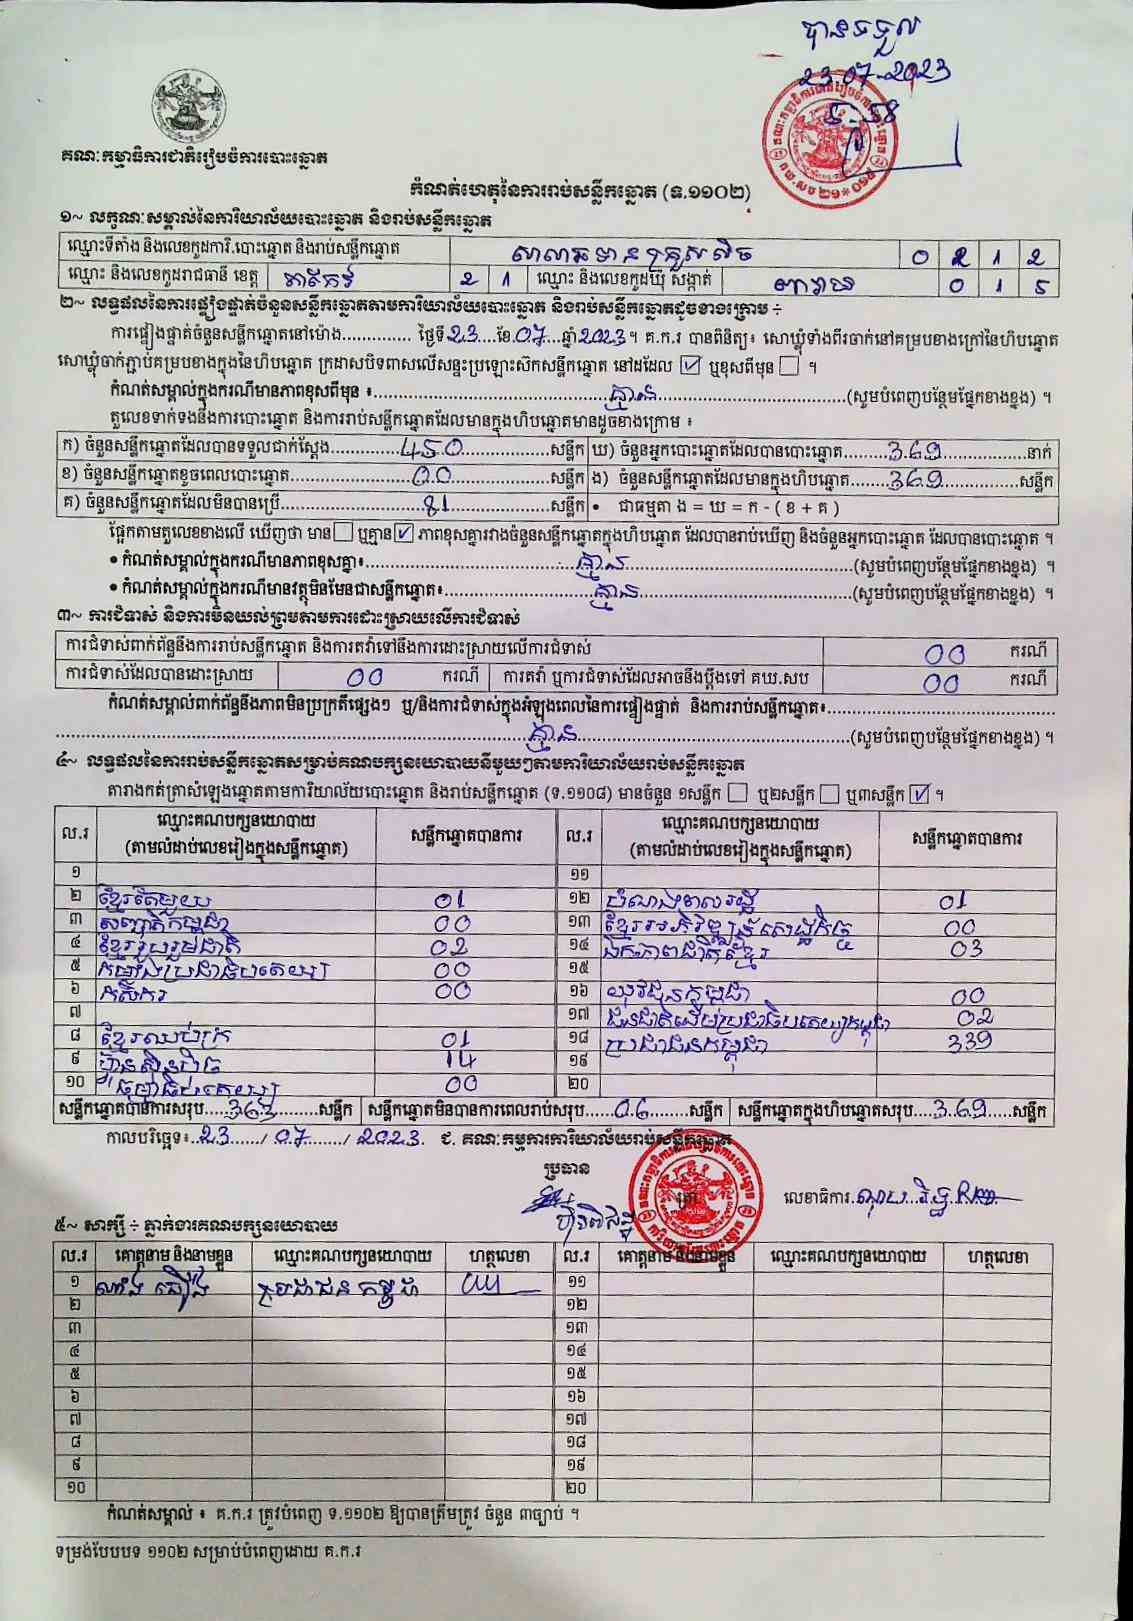 បានទទួល
23.07-2023
គណៈកម្មាធិការជាតិរៀបចំការបោះឆ្នោត
កំណត់ហេតុនៃការរាប់សន្លឹកឆ្នោត (ទ.១១០២)
១~ លក្ខណៈសម្គាល់នៃការិយាល័យបោះឆ្នោត និងរាប់សន្លឹកឆ្នោត
ឈ្មោះទីតាំង និងលេខកូដការិ.បោះឆ្នោត និងរាប់សន្លឹកឆ្នោត 0 2 1 2
ឈ្មោះ និងលេខកូដរាជធានី ខេត្ត តាកែវ 2 1 ឈ្មោះ និងលេខកូដឃុំ សង្កាត់ 0 1 5
២~ លទ្ធផលនៃការផ្ទៀងផ្ទាត់ចំនួនសន្លឹកឆ្នោតតាមការិយាល័យបោះឆ្នោត និងរាប់សន្លឹកឆ្នោតដូចខាងក្រោម ÷
ការផ្ទៀងផ្ទាត់ចំនួនសន្លឹកឆ្នោតនៅម៉ោង............. ថ្ងៃទី23....ខែ.07....ឆ្នាំ2023។ គ.ក.រ បានពិនិត្យ៖ សោឃ្លុំទាំងពីរចាក់នៅគម្របខាងក្រៅនៃហិបឆ្នោត
សោឃ្លុំចាក់ភ្ជាប់គម្របខាងក្នុងនៃហិបឆ្នោត ក្រដាសបិទពាសលើសន្ទះប្រឡោះស៊កសន្លឹកឆ្នោត នៅដដែល ☑ ឬខុសពីមុន ☐ ។
កំណត់សម្គាល់ក្នុងករណីមានភាពខុសពីមុន ៖.....គ្មាន.....(សូមបំពេញបន្ថែមផ្នែកខាងខ្នង) ។
តួលេខទាក់ទងនឹងការបោះឆ្នោត និងការរាប់សន្លឹកឆ្នោតដែលមានក្នុងហិបឆ្នោតមានដូចខាងក្រោម ៖
ក) ចំនួនសន្លឹកឆ្នោតដែលបានទទួលជាក់ស្តែង.....450.....សន្លឹក ឃ) ចំនួនអ្នកបោះឆ្នោតដែលបានបោះឆ្នោត.....369.....នាក់
ខ) ចំនួនសន្លឹកឆ្នោតខូចពេលបោះឆ្នោត.....00.....សន្លឹក ង) ចំនួនសន្លឹកឆ្នោតដែលមានក្នុងហិបឆ្នោត.....369.....សន្លឹក
គ) ចំនួនសន្លឹកឆ្នោតដែលមិនបានប្រើ.....81.....សន្លឹក • ជាធម្មតា ង = ឃ = ក - ( ខ + គ )
ផ្អែកតាមតួលេខខាងលើ ឃើញថា មាន ☐ ឬគ្មាន ☑ ភាពខុសគ្នារវាងចំនួនសន្លឹកឆ្នោតក្នុងហិបឆ្នោត ដែលបានរាប់ឃើញ និងចំនួនអ្នកបោះឆ្នោត ដែលបានបោះឆ្នោត ។
• កំណត់សម្គាល់ក្នុងករណីមានភាពខុសគ្នា៖.....គ្មាន.....(សូមបំពេញបន្ថែមផ្នែកខាងខ្នង) ។
• កំណត់សម្គាល់ក្នុងករណីមានវត្ថុមិនមែនជាសន្លឹកឆ្នោត៖.....គ្មាន.....(សូមបំពេញបន្ថែមផ្នែកខាងខ្នង) ។
៣~ ការជំទាស់ និងការមិនយល់ព្រមតាមការដោះស្រាយលើការជំទាស់
ការជំទាស់ពាក់ព័ន្ធនឹងការរាប់សន្លឹកឆ្នោត និងការតវ៉ាទៅនឹងការដោះស្រាយលើការជំទាស់ 00 ករណី
ការជំទាស់ដែលបានដោះស្រាយ 00 ករណី ការតវ៉ា ឬការជំទាស់ដែលអាចនឹងប្តឹងទៅ គឃ.សប 00 ករណី
កំណត់សម្គាល់ពាក់ព័ន្ធនឹងភាពមិនប្រក្រតីផ្សេងៗ ឬ/និងការជំទាស់ក្នុងអំឡុងពេលនៃការផ្ទៀងផ្ទាត់ និងការរាប់សន្លឹកឆ្នោត៖.....
.....គ្មាន.....(សូមបំពេញបន្ថែមផ្នែកខាងខ្នង) ។
៤~ លទ្ធផលនៃការរាប់សន្លឹកឆ្នោតសម្រាប់គណបក្សនយោបាយនីមួយៗតាមការិយាល័យរាប់សន្លឹកឆ្នោត
តារាងកត់ត្រាសំឡេងឆ្នោតតាមការិយាល័យបោះឆ្នោត និងរាប់សន្លឹកឆ្នោត (ទ.១១០៨) មានចំនួន ១សន្លឹក ☐ ឬ២សន្លឹក ☐ ឬ៣សន្លឹក ☑ ។
ល.រ ឈ្មោះគណបក្សនយោបាយ (តាមលំដាប់លេខរៀងក្នុងសន្លឹកឆ្នោត) សន្លឹកឆ្នោតបានការ ល.រ ឈ្មោះគណបក្សនយោបាយ (តាមលំដាប់លេខរៀងក្នុងសន្លឹកឆ្នោត) សន្លឹកឆ្នោតបានការ
១ ១១
២ ខ្មែរតែមួយ 01 ១២ សំណាងមាសរដ្ឋ 01
៣ សញ្ជាតិកម្ពុជា 00 ១៣ ខ្មែរអភិវឌ្ឍន៍សេដ្ឋកិច្ច 00
៤ ខ្មែររួបរួមជាតិ 02 ១៤ ឯកភាពជាតិខ្មែរ 03
៥ កម្លាំងប្រជាធិបតេយ្យ 00 ១៥
៦ កសិករ 00 ១៦ យុវជនកម្ពុជា 00
៧ ១៧ ជនជាតិដើមប្រជាធិបតេយ្យកម្ពុជា 02
៨ ខ្មែរឈប់ក្រ 01 ១៨ ប្រជាជនកម្ពុជា 339
៩ ហ៊្វុនស៊ិនប៉ិច 14 ១៩
១០ ធម្មាធិបតេយ្យ 00 ២០
សន្លឹកឆ្នោតបានការសរុប.....363.....សន្លឹក សន្លឹកឆ្នោតមិនបានការពេលរាប់សរុប.....06.....សន្លឹក សន្លឹកឆ្នោតក្នុងហិបឆ្នោតសរុប.....369.....សន្លឹក
កាលបរិច្ឆេទ៖..23...../.07....../.2023. ជ. គណៈកម្មការការិយាល័យរាប់សន្លឹកឆ្នោត
ប្រធាន ត្រា លេខាធិការ
៥~ សាក្សី ÷ ភ្នាក់ងារគណបក្សនយោបាយ
ល.រ គោត្តនាម និងនាមខ្លួន ឈ្មោះគណបក្សនយោបាយ ហត្ថលេខា ល.រ គោត្តនាម និងនាមខ្លួន ឈ្មោះគណបក្សនយោបាយ ហត្ថលេខា
១ ប្រជាជនកម្ពុជា ១១
២ ១២
៣ ១៣
៤ ១៤
៥ ១៥
៦ ១៦
៧ ១៧
៨ ១៨
៩ ១៩
១០ ២០
កំណត់សម្គាល់ ៖ គ.ក.រ ត្រូវបំពេញ ទ.១១០២ ឱ្យបានត្រឹមត្រូវ ចំនួន ៣ច្បាប់ ។
ទម្រង់បែបបទ ១១០២ សម្រាប់បំពេញដោយ គ.ក.រ